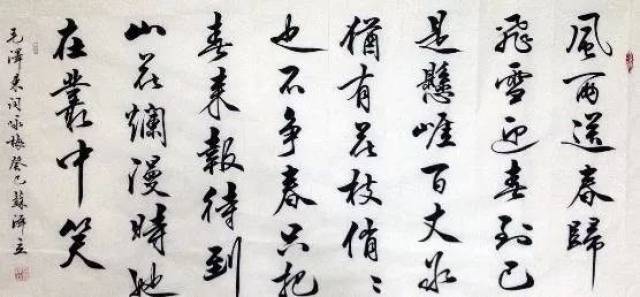 風雨送春歸
飛雪迎春到已
是懸崖百丈冰
猶有花枝俏々
也不争春只把
春来報待到
山花爛漫時她
在叢中笑
毛澤东词咏梅癸巳蘇澤立